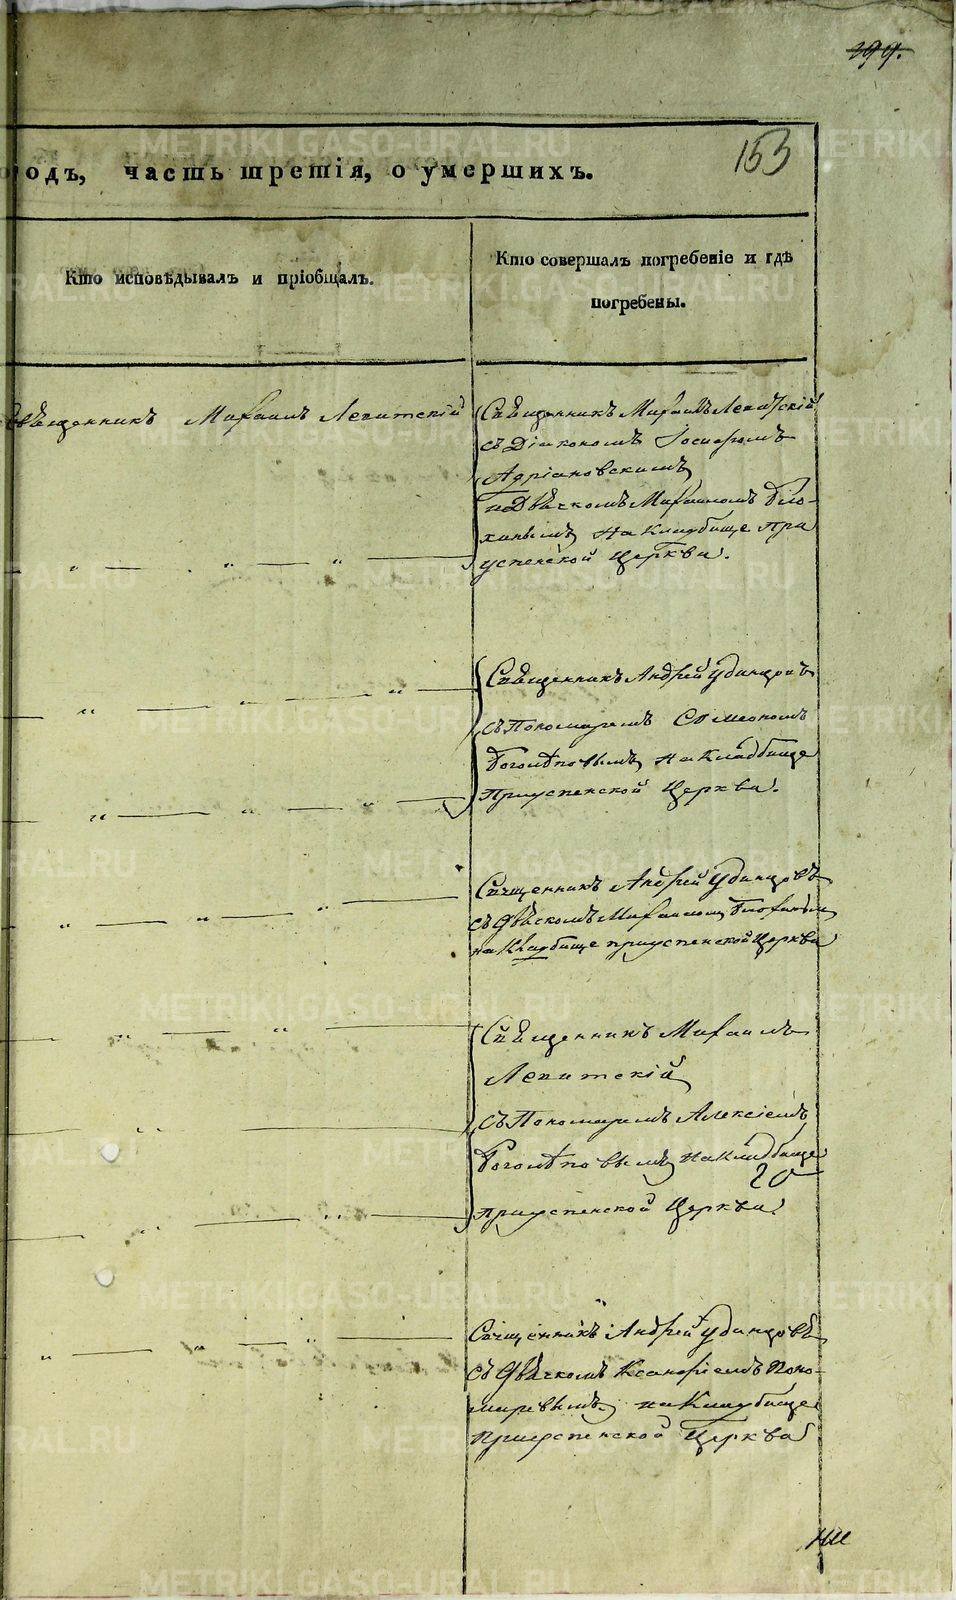 199.
153
одъ, часть третія, о умершихъ.
Кто исповѣдывалъ и пріобщалъ.
Кто совершалъ погребеніе и гдѣ
погребены.
Священникъ Михаилъ Левитскій
Священникъ Михаилъ Левитскій
съ Діакономъ Іосифомъ
Адріановскимъ
и Дьячкомъ Михаиломъ Бло-
хинымъ на Кладбище при
успенской Церкви.
Священникъ Андрей Удинцовъ
съ Пономаремъ Симеономъ
Боголѣповымъ на Кладбище
Приуспенской Церкви.
Священникъ Андрей Удинцовъ
съ Дьячкомъ Михаиломъ Блохинымъ
на Кладбище приуспенской Церкви
Священникъ Михаилъ
Левитскій
съ Пономаремъ Алексіемъ
Боголѣповымъ на Кладбище
приуспенской Церкви.
Священникъ Андрей Удинцовъ
съ Дьячкомъ Ксанфіемъ Поно-
маревымъ на Кладбище
Приуспенской Церкви
METRIKI.GASO-URAL.RU